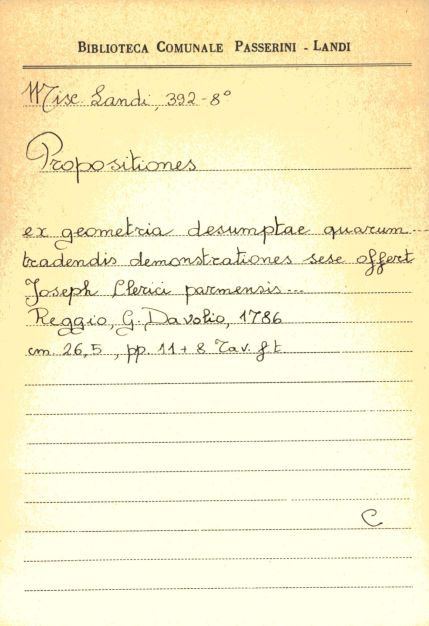 BIBLIOTECA COMUNALE PASSERINI - LANDI
Misc. Landi, 392-8°
Propositiones
ex geometria desumptae quarum...
tradendis demonstrationes sese offert
Joseph Clerici parmensis...
Reggio, G. Davolio, 1786
cm. 26,5, pp. 11 + 8 Tav. f.t.
C